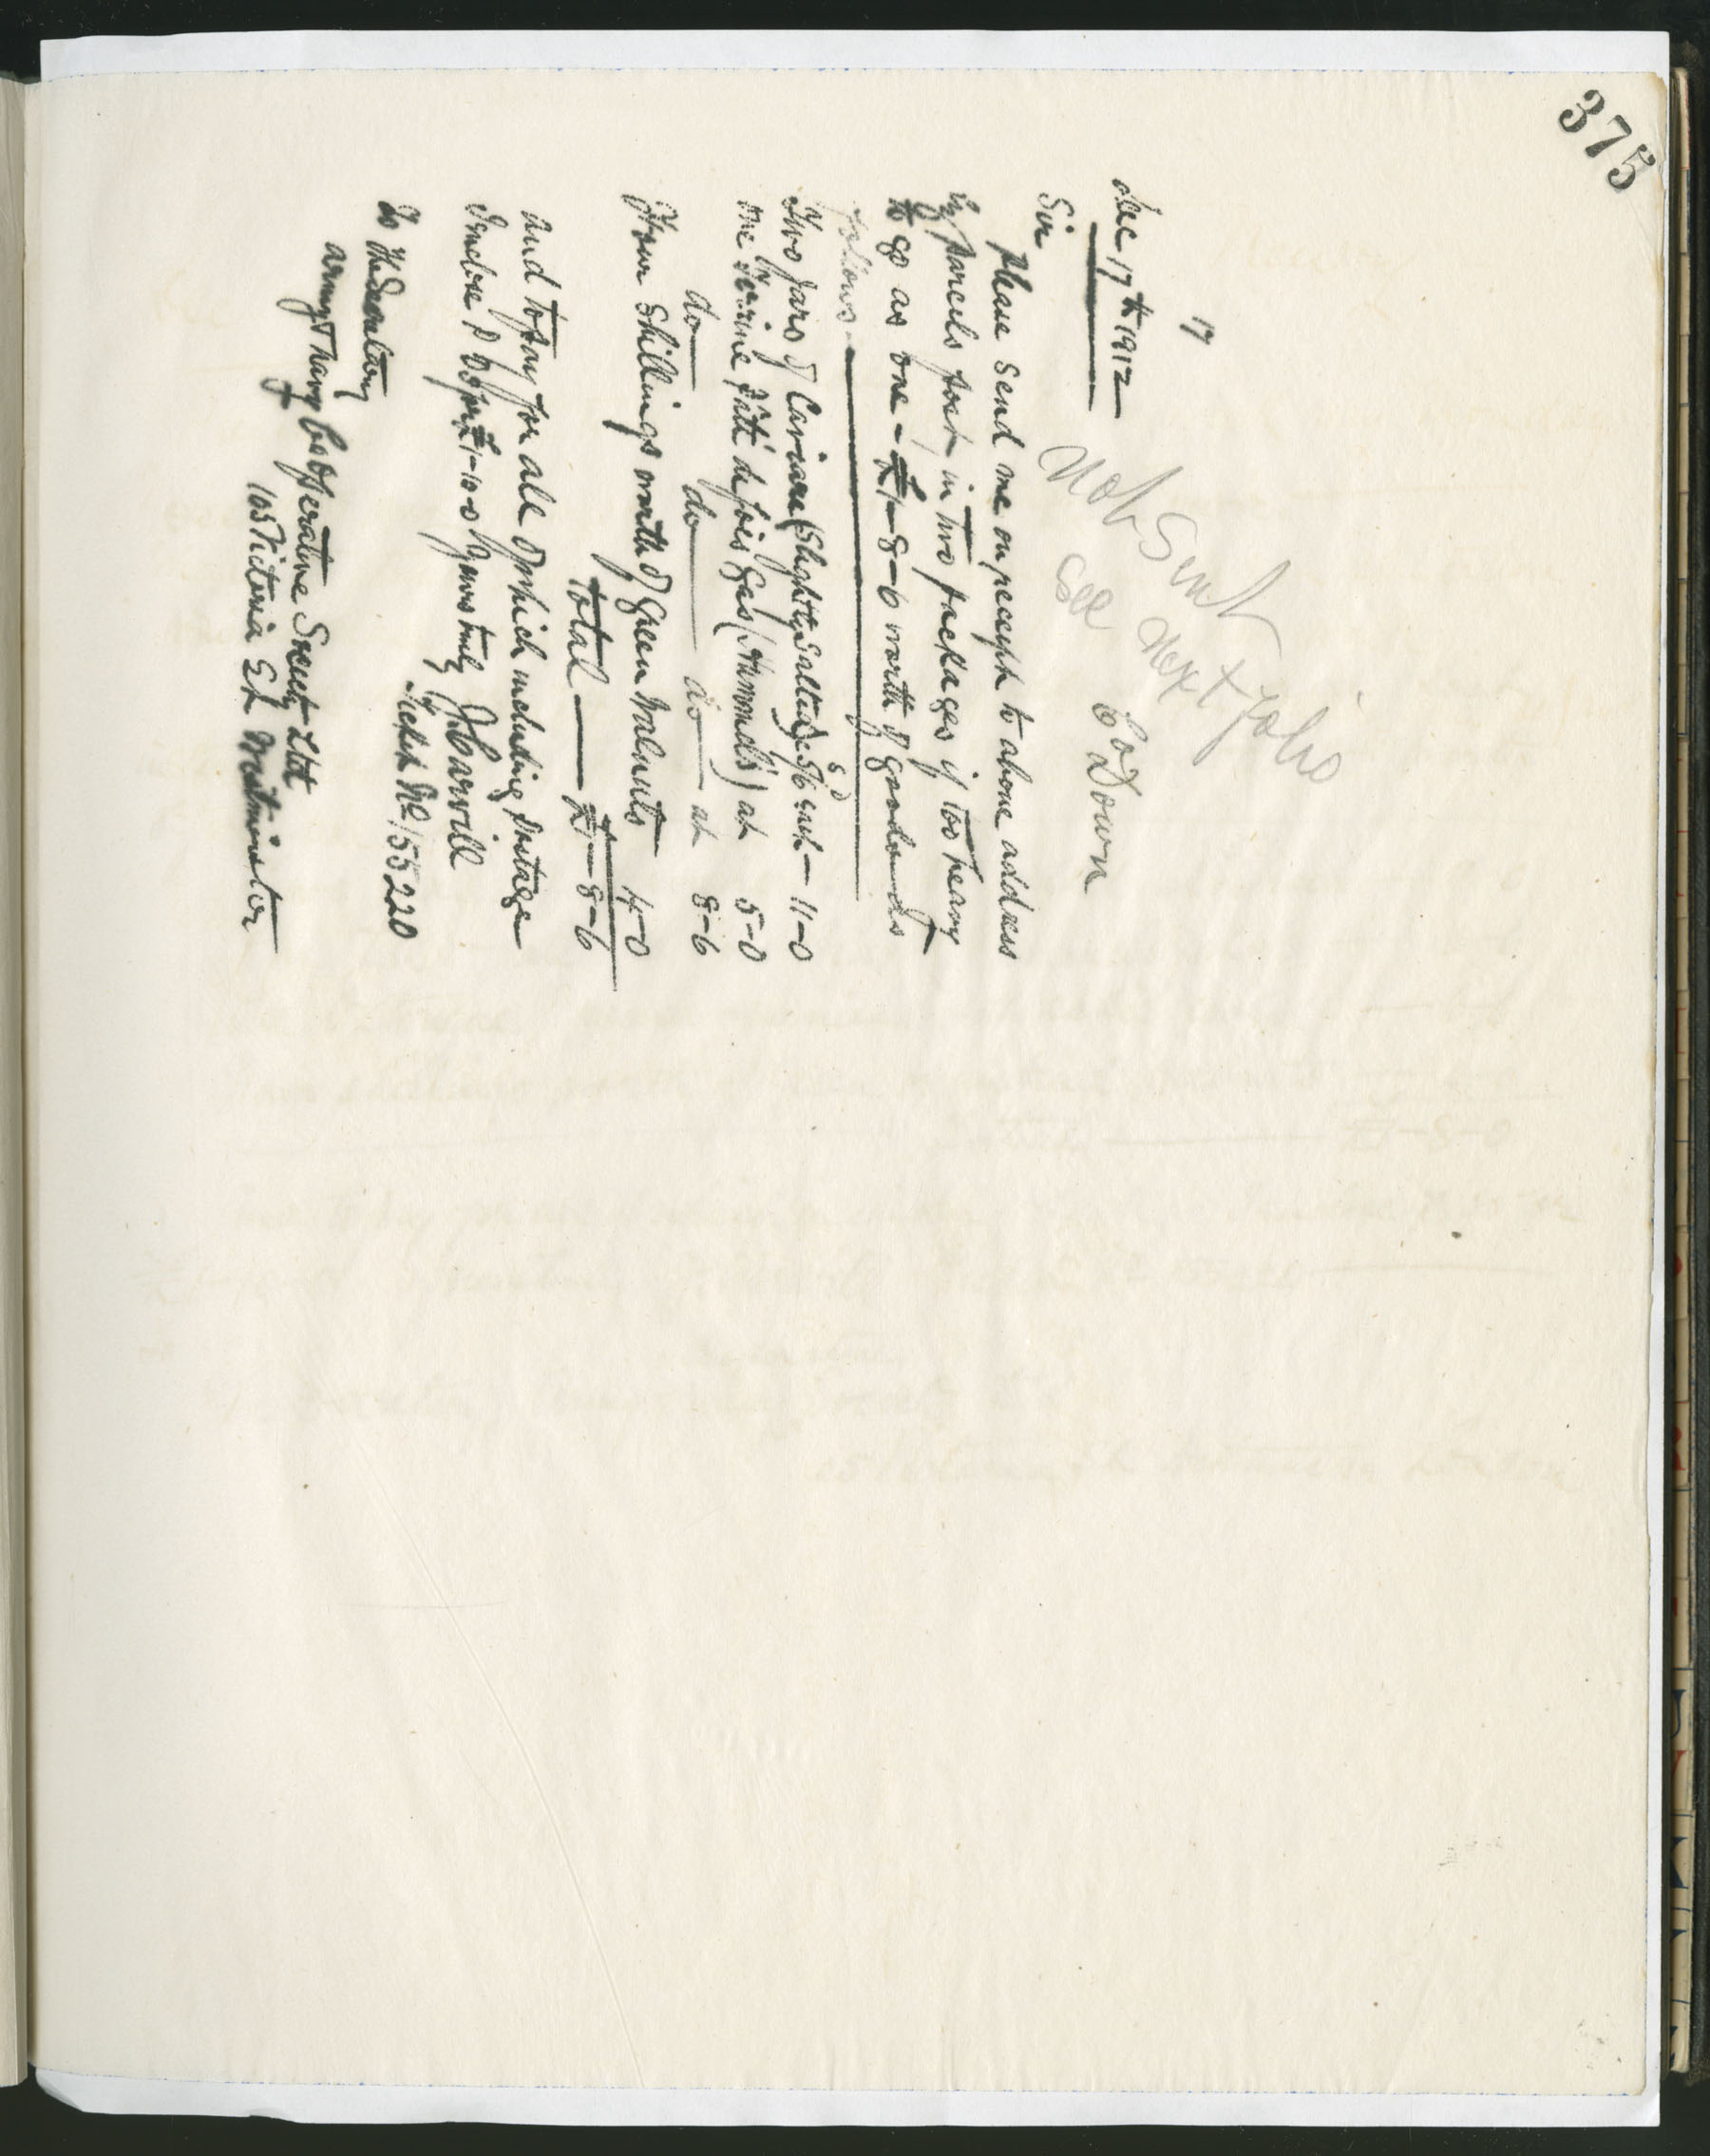 375
17
Dec 17th 1912
Co Down
Not Sent
See next folio
Sir
Please send me on receipt to above address
by parcels post in two packages if too heavy
to go as one - £1-8-6 worth of goods as
follows.
Two jars of Caviare (Slightly Salted) 5/6 each - 11-0
s d
one Terrine Pâté de foies Gas (Hummel's) at 5-0
do do do at 8-6
Four Shillings worth of Green Walnuts 4-0
Total £1-8-6
and to pay for all of which including postage
I enclose P.O for £1-10-0 Yours truly
Ticket No/55220
To The Secretary
Army & Navy CoOperative Society Ltd
105 Victoria St Westminster